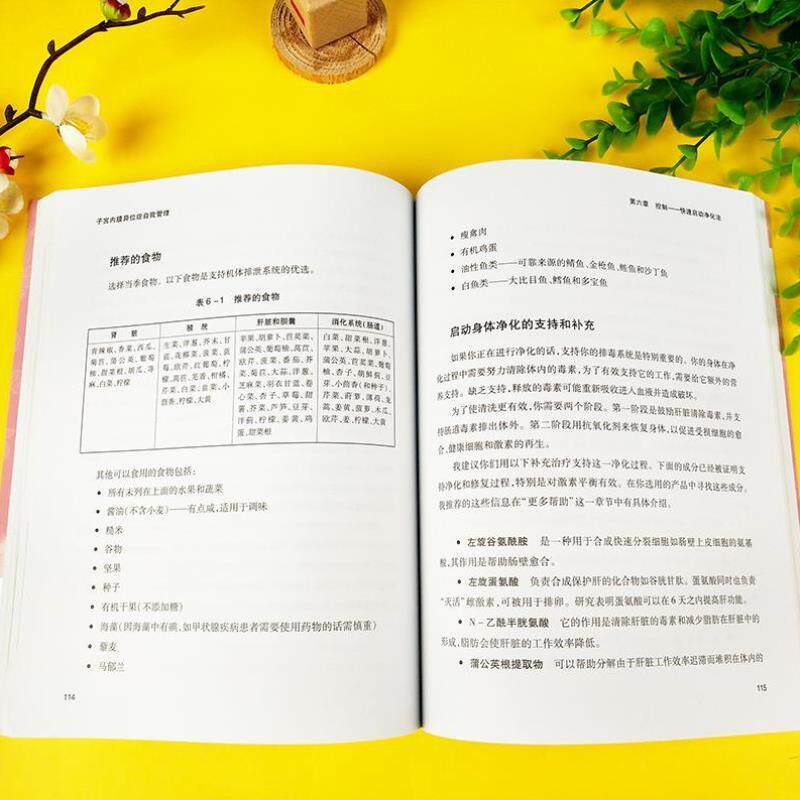 子宫内膜异位症自我管理
推荐的食物
选择当季食物。以下食物是支持机体排泄系统的优选。
表6-1 推荐的食物
肾脏
青辣椒、香菜、西瓜、
菊苣、蒲公英、葡萄
柚、甜菜根、胡瓜、荨
麻、白菜、柠檬
膀胱
生菜、洋葱、芥末、甘
蓝、花椰菜、菠菜、豆
苗、欧芹、葡萄、
柠檬、莴苣、芫荽、柑橘、
芹菜、白菜、韭菜、小
茴香、柠檬、大黄
肝脏和胆囊
苹果、胡萝卜、苣荬菜、
蒲公英、葡萄柚、莴苣、
欧芹、菠菜、番茄、芥
菜、菊苣、大蒜、洋葱、
芝麻菜、羽衣甘蓝、卷
心菜、杏子、草莓、甜
薯、芥菜、芦笋、豆芽、
洋蓟、柠檬、姜黄、鸡
蛋、甜菜根
消化系统(肠道)
白菜、甜菜根、洋葱、
苹果、大蒜、胡萝卜、
菊苣、苣荬菜、葡萄
柚、杏子、胡鲜蓟、豆
芽、小茴香(和种子)、
芹菜、莳萝、薄荷、龙
蒿、姜黄、菠萝、木瓜、
欧芹、姜、柠檬、大黄
其他可以食用的食物包括:
• 所有未列在上面的水果和蔬菜
• 酱油(不含小麦)——有点咸,适用于调味
• 糙米
• 谷物
• 坚果
• 种子
• 有机干果(不添加糖)
• 海藻(因海藻中有碘,如甲状腺疾病患者需要使用药物的话需慎重)
• 藜麦
• 马郁兰
114
第六章 控制——快速启动净化法
• 瘦禽肉
• 有机鸡蛋
• 油性鱼类——可靠来源的鲭鱼、金枪鱼、鲑鱼和沙丁鱼
• 白鱼类——大比目鱼、鳕鱼和多宝鱼
启动身体净化的支持和补充
如果你正在进行净化的话,支持你的排毒系统是特别重要的。你的身体在净
化过程中需要努力清除体内的毒素,为了有效支持它的工作,需要给它额外的营
养支持。缺乏支持,释放的毒素可能重新吸收进入血液并造成破坏。
为了使清洗更有效,你需要两个阶段。第一阶段是鼓励肝脏清除毒素,并支
持肠道毒素排出体外。第二阶段用抗氧化剂来恢复身体,以促进受损细胞的愈
合,健康细胞和激素的再生。
我建议你们用以下补充治疗支持这一净化过程。下面的成分已经被证明支
持净化和修复过程,特别是对激素平衡有效。在你选用的产品中寻找这些成分。
我推荐的这些信息在“更多帮助”这一章节中有具体介绍。
• 左旋谷氨酰胺 是一种用于合成快速分裂细胞如肠壁上皮细胞的氨基
酸,其作用是帮助肠壁愈合。
• 左旋蛋氨酸 负责合成保护肝的化合物如谷胱甘肽。蛋氨酸同时也负责
“灭活”雌激素,可被用于排卵。研究表明蛋氨酸可以在6天之内提高肝功能。
• N-乙酰半胱氨酸 它的作用是清除肝脏的毒素和减少脂肪在肝脏中的
形成,脂肪会使肝脏的工作效率降低。
• 蒲公英根提取物 可以帮助分解由于肝脏工作效率迟滞而堆积在体内的
115